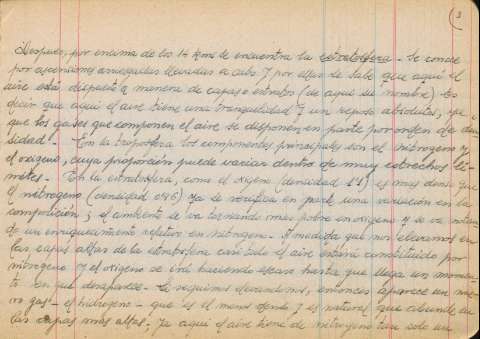 (3
Después, por encima de los 14 kms se encuentra la estratosfera. Se conoce
por ascensiones arriesgadas llevadas a cabo y por ellas se sabe que aquí el
aire está dispuesto a manera de capas o estratos (de aquí su nombre). Es
decir que aquí el aire tiene una tranquilidad y un reposo absolutos, ya
que los gases que componen el aire se disponen en parte por orden de den-
sidad. - En la troposfera los componentes principales son el nitrógeno y
el oxígeno, cuya proporción puede variar dentro de muy estrechos lí-
mites. - En la estratosfera, como el oxígeno (densidad 1'1) es muy denso que
el nitrógeno (densidad 0'96) ya se verifica en parte una variación en la
composición; el ambiente se va tornando más pobre en oxígeno y se va notan-
do un enriquecimiento relativo en nitrógeno. A medida que nos elevamos en
las capas altas de la estratosfera casi todo el aire estará constituido por
nitrógeno y el oxígeno se irá haciendo escaso hasta que llega un momen-
to en que desaparece. Si seguimos elevándonos, entonces aparece un nue-
vo gas - el hidrógeno - que es el menos denso y es natural que abunde en
las capas más altas; ya aquí el aire tiene de nitrógeno tan solo un